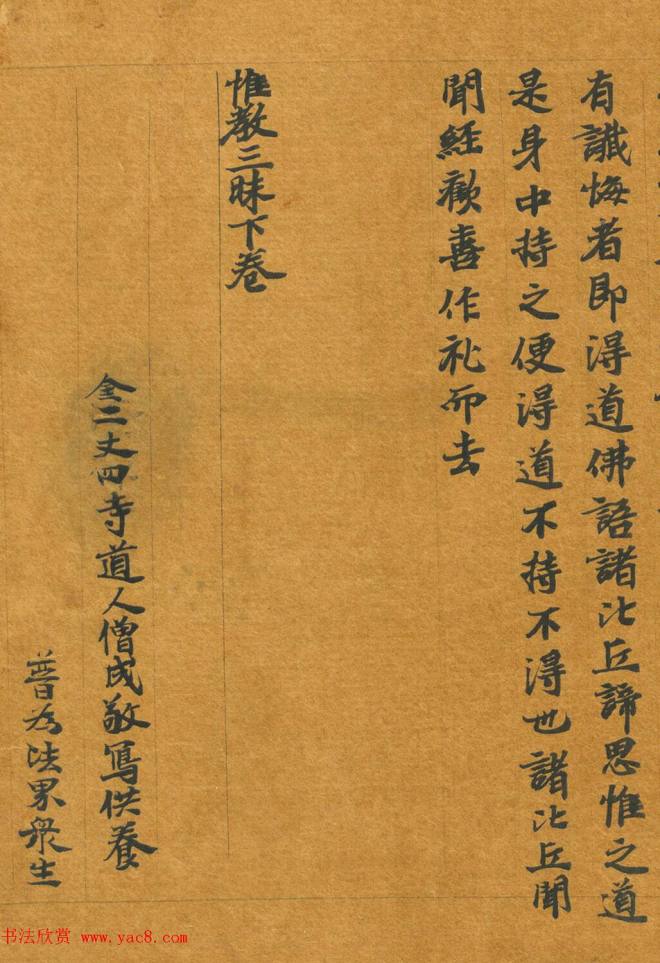 有讖悔者即淂道佛語諸比丘諦思惟之道
是身中持之便淂道不持不淂也諸比丘聞
聞經歡喜作礼而去
惟教三昧下卷
二丈四寺道人僧成敬寫供養
普為法界衆生
书法欣赏 www.yac8.com